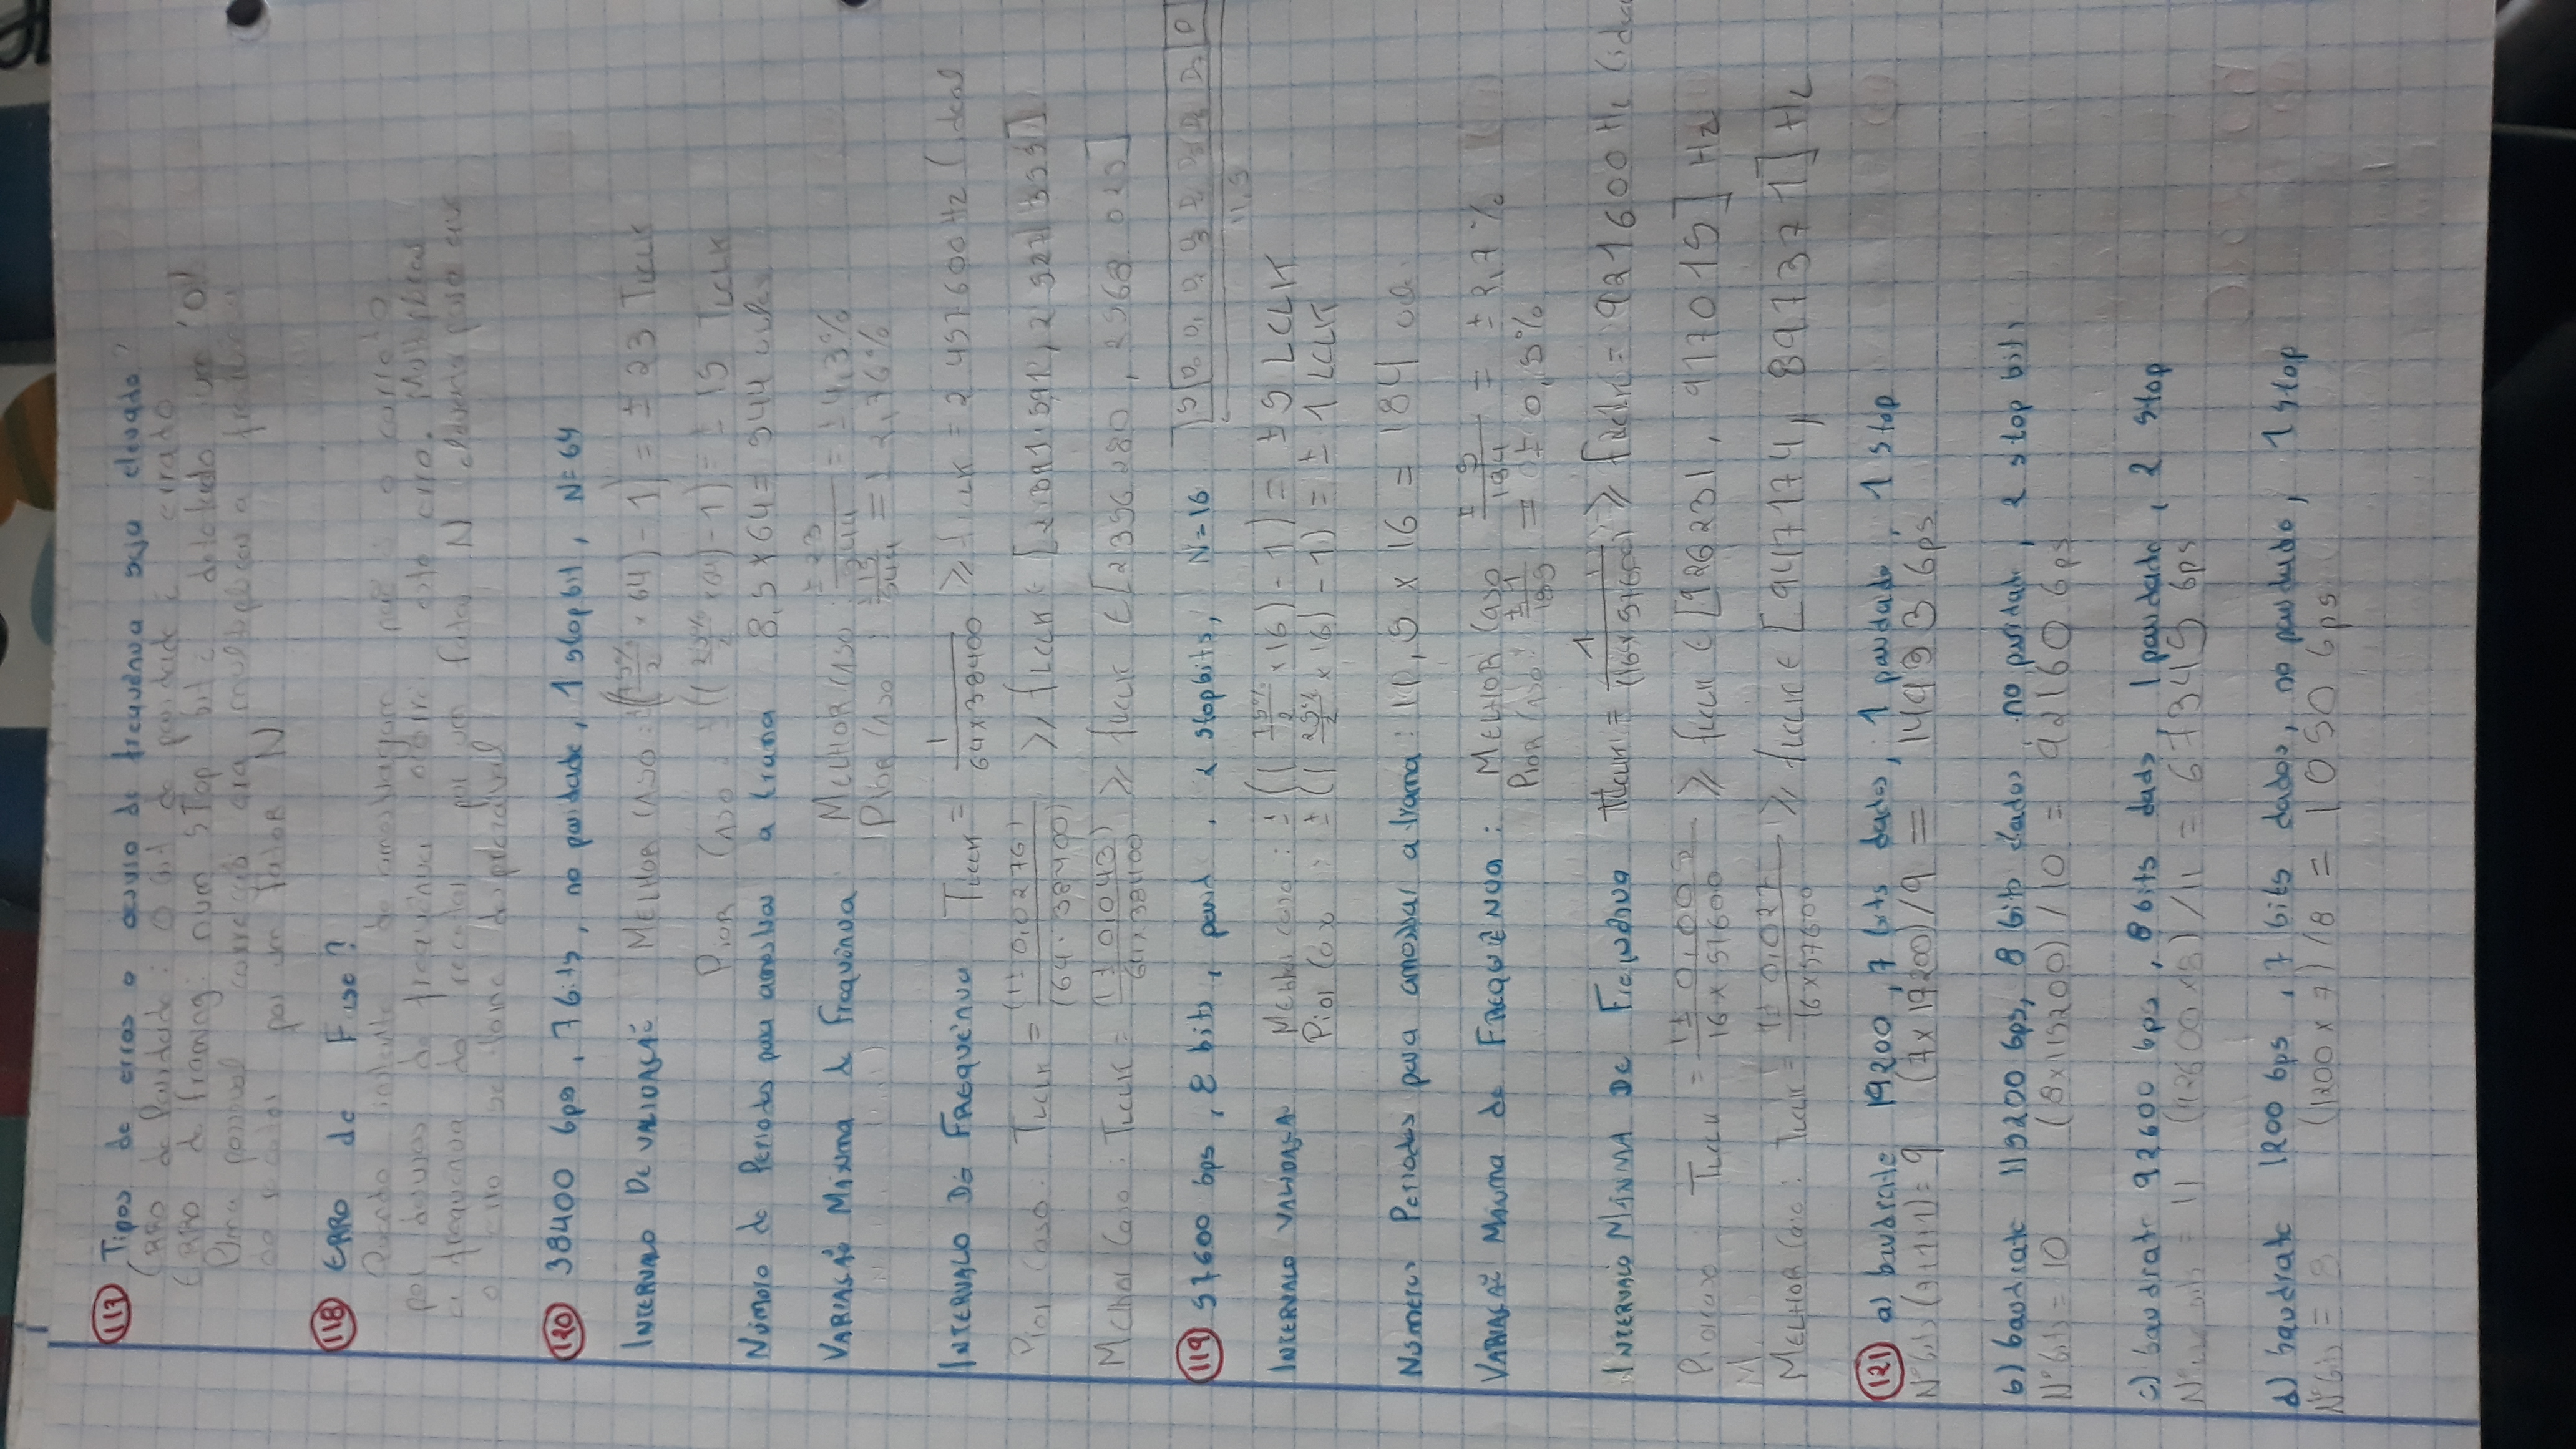 117 Tipos de erros o desvio de frequência seja elevado?
ERRO de Paridade: O bit de paridade é errado
ERRO de framing: num STOP bit é detetado um '0'
Uma possível correção era multiplicar a frequência
do recetor por um fator N
118 ERRO de Fase?
Quando instante de amostragem não é o correto
por desvios de frequência ocorre este erro. Multiplicar
a frequência do recetor por um fator N elevado para que
o erro se torne desprezável
120 38400 bps, 7 bits, no paridade, 1 stop bit, N=64
INTERVALO DE VALIDAÇÃO MELHOR CASO: ±((75%/2 × 64) - 1) = ± 23 TLCLK
PIOR CASO: ±((25%/2 × 64) - 1) = ± 15 TLCLK
Número de Periodos para amostrar a trama 8,5 × 64 = 544
VARIAÇÃO Máxima de Frequência MELHOR CASO ±23/544 = ±4,3%
PIOR CASO: ±15/544 = ± 2,76%
INTERVALO DE FREQUÊNCIA TLCLK = 1/(64×38400) ⩾ fLCLK = 2 457600 Hz (ideal
Pior Caso: TLCLK = (1±0,0276)/(64·38400) ⩾ fLCLK ∈ [2 391 591,
Melhor Caso: TLCLK = (1±0,043)/(64×38400) ⩾ fLCLK ∈ [2 356 280, 2568 025]
119 57600 bps, 8 bits, parid, 2 stop bits, N=16 S D0 D1 D2 D3 D4 D5 D6 D7 P
11,5
INTERVALO VALIDAÇÃ Melhor caso: ±((75%/2 × 16) - 1) = ± 5 LCLK
Pior Caso: ±((25%/2 × 16) - 1) = ± 1 LCLK
Números Periodos para amostrar a trama: 11,5 × 16 = 184
VARIAÇÃO Máxima de FREQUÊNCIA: MELHOR CASO ±5/184 = ± 2,7%
PIOR CASO: = ± 0,5%
INTERVALO MÁXIMA DE Frequência TLCLK = 1/(16×57600) ⩾ fLCLK = 921600 Hz
Pior caso: TLCLK = /16×57600 ⩾ fLCLK ∈ [926231, 917015] Hz
MELHOR Caso: TLCLK = 1±0,027/16×57600 ⩾ fLCLK ∈ [947174, 897371] Hz
121 a) baudrate 19200, 7 bits dados, 1 paridade, 1 stop
Nº bits (7+1+1) = 9 (7×19200)/9 = 14933 bps
b) baudrate 115200 bps, 8 bits dados, no paridade, 2 stop bits
Nº bits = 10 (8×115200)/10 = 92160 bps
c) baudrate 92600 bps, 8 bits dados, 1 paridade, 2 stop
= 11 (92600×8)/11 = 67345 bps
d) baudrate 1200 bps, 7 bits dados, no paridade, 1 stop
Nº bits = 8 (1200×7)/8 = 1050 bps